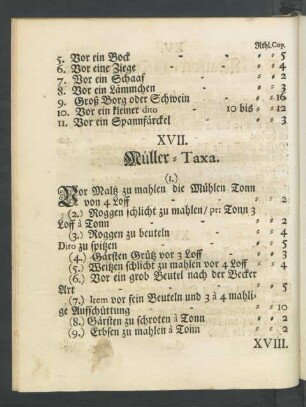 Rthl. Cop.
5. Vor ein Bock - - - 5
6. Vor eine Ziege - - - 4
7. Vor ein Schaaf - - - 2
8. Vor ein Lämmchen - - - 3
9. Groß Borg oder Schwein - - 16
10. Vor ein kleiner dito - 10 bis - 12
11. Vor ein Spannfärckel - - - 3
XVII.
Müller-Taxa.
(1.)
Vor Maltz zu mahlen die Mühlen Tonn
von 4 Loff - - - 2
(2.) Roggen schlicht zu mahlen / pr: Tonn 3
Loff à Tonn - - - 2
(3.) Roggen zu beuteln - - - 4
Dito zu spitzen - - - 5
(4.) Gärsten Grütz vor 3 Loff - - 3
(5.) Weitzen schlicht zu mahlen vor 4 Loff - 4
(6.) Vor ein grob Beutel nach der Becker
Art - - - 5
(7.) Item vor fein Beuteln und 3 à 4 mahli-
ge Auffschüttung - - - 10
(8.) Gärsten zu schroten à Tonn - - 2
(9.) Erbsen zu mahlen à Tonn - - 2
XVIII.